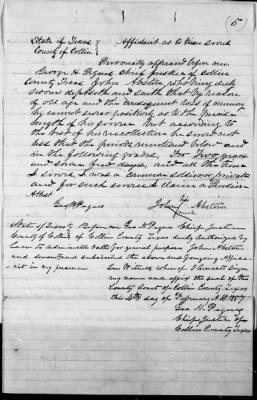 5
State of Texas } Affidavit as to Time served
County of Collin }
Personally appeared before me
George H. Pegues Chief Justice of Collin
County Texas John Abston who being duly
sworn deposeth and saith that by reason
of old age and the consequent loss of memory
he cannot swear positively as to the precise
length of his service But according to
the best of his recollection he served not
less than the periods mentioned below and
in the following grades For Two years
and seven days, and at the time
I served, I was a common soldier or private
and for such service I claim a Pension
Attest his
Geo H Pegues John X Abston
mark
State of Texas } Before me Geo H Pegues Chief Justice
County of Collin } of Collin County Texas duly authorized by
Law to administer oaths for general purposes John Abston
and subscribed the above and foregoing Affida-
vit in my presence In witness whereof I hereunto sign
my name and affix the seal of the
County Court of Collin County Texas
this day of February A.D. 1857
Geo H. Pegues
Chief Justice of
Collin County Texas